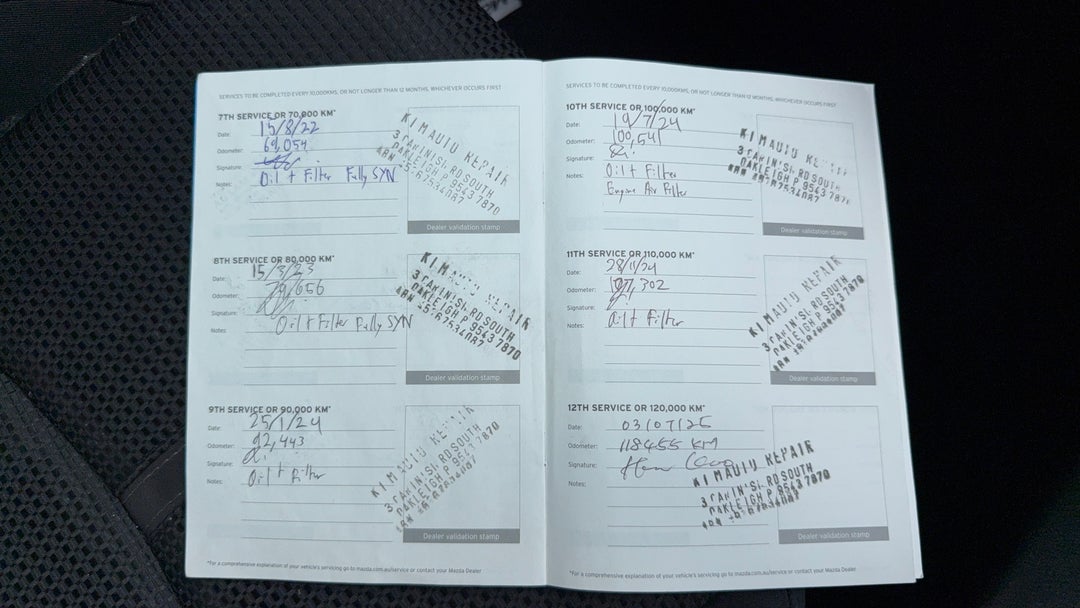 SERVICES TO BE COMPLETED EVERY 10,000KMS, OR NOT LONGER THAN 12 MONTHS, WHICHEVER OCCURS FIRST
7TH SERVICE OR 70,000 KM*
Date: 15/8/22
Odometer: 69,054
Signature:
Notes: Oil + Filter Fully SYN
KIM AUTO REPAIR
RD SOUTH
OAKLEIGH P 9543 7870
Dealer validation stamp
8TH SERVICE OR 80,000 KM*
Date: 15/3/23
Odometer: 79,656
Signature:
Notes: Oil + Filter Fully SYN
KIM AUTO REPAIR
RD SOUTH
OAKLEIGH P 9543 7870
Dealer validation stamp
9TH SERVICE OR 90,000 KM*
Date: 25/1/24
Odometer: 92,443
Signature:
Notes: Oil + Filter
KIM AUTO REPAIR
RD SOUTH
OAKLEIGH P 9543 7870
Dealer validation stamp
*For a comprehensive explanation of your vehicle's servicing go to mazda.com.au/service or contact your Mazda Dealer
SERVICES TO BE COMPLETED EVERY 10,000KMS, OR NOT LONGER THAN 12 MONTHS, WHICHEVER OCCURS FIRST
10TH SERVICE OR 100,000 KM*
Date: 19/7/24
Odometer: 100,541
Signature:
Notes: Oil + Filter
Engine Air Filter
KIM AUTO
RD SOUTH
OAKLEIGH P 9543 7870
Dealer validation stamp
11TH SERVICE OR 110,000 KM*
Date: 28/11/24
Odometer: 107,302
Signature:
Notes: Oil + Filter
KIM AUTO REPAIR
RD SOUTH
OAKLEIGH P 9543 7870
Dealer validation stamp
12TH SERVICE OR 120,000 KM*
Date: 03/07/25
Odometer: 118455 KM
Signature:
Notes:
KIM AUTO REPAIR
RD SOUTH
OAKLEIGH P 9543 7870
Dealer validation stamp
*For a comprehensive explanation of your vehicle's servicing go to mazda.com.au/service or contact your Mazda Dealer